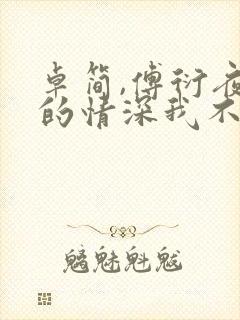 卓简,傅衍夜
的情深我不
魑魅魁魃